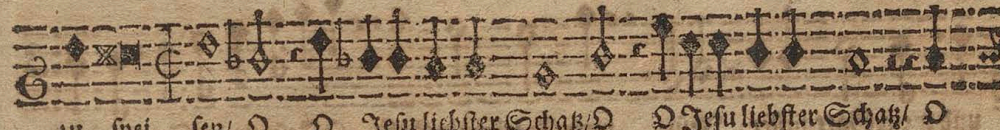 spei sen/ O O Jesu liebster Schatz/ O O Jesu liebster Schatz/ O